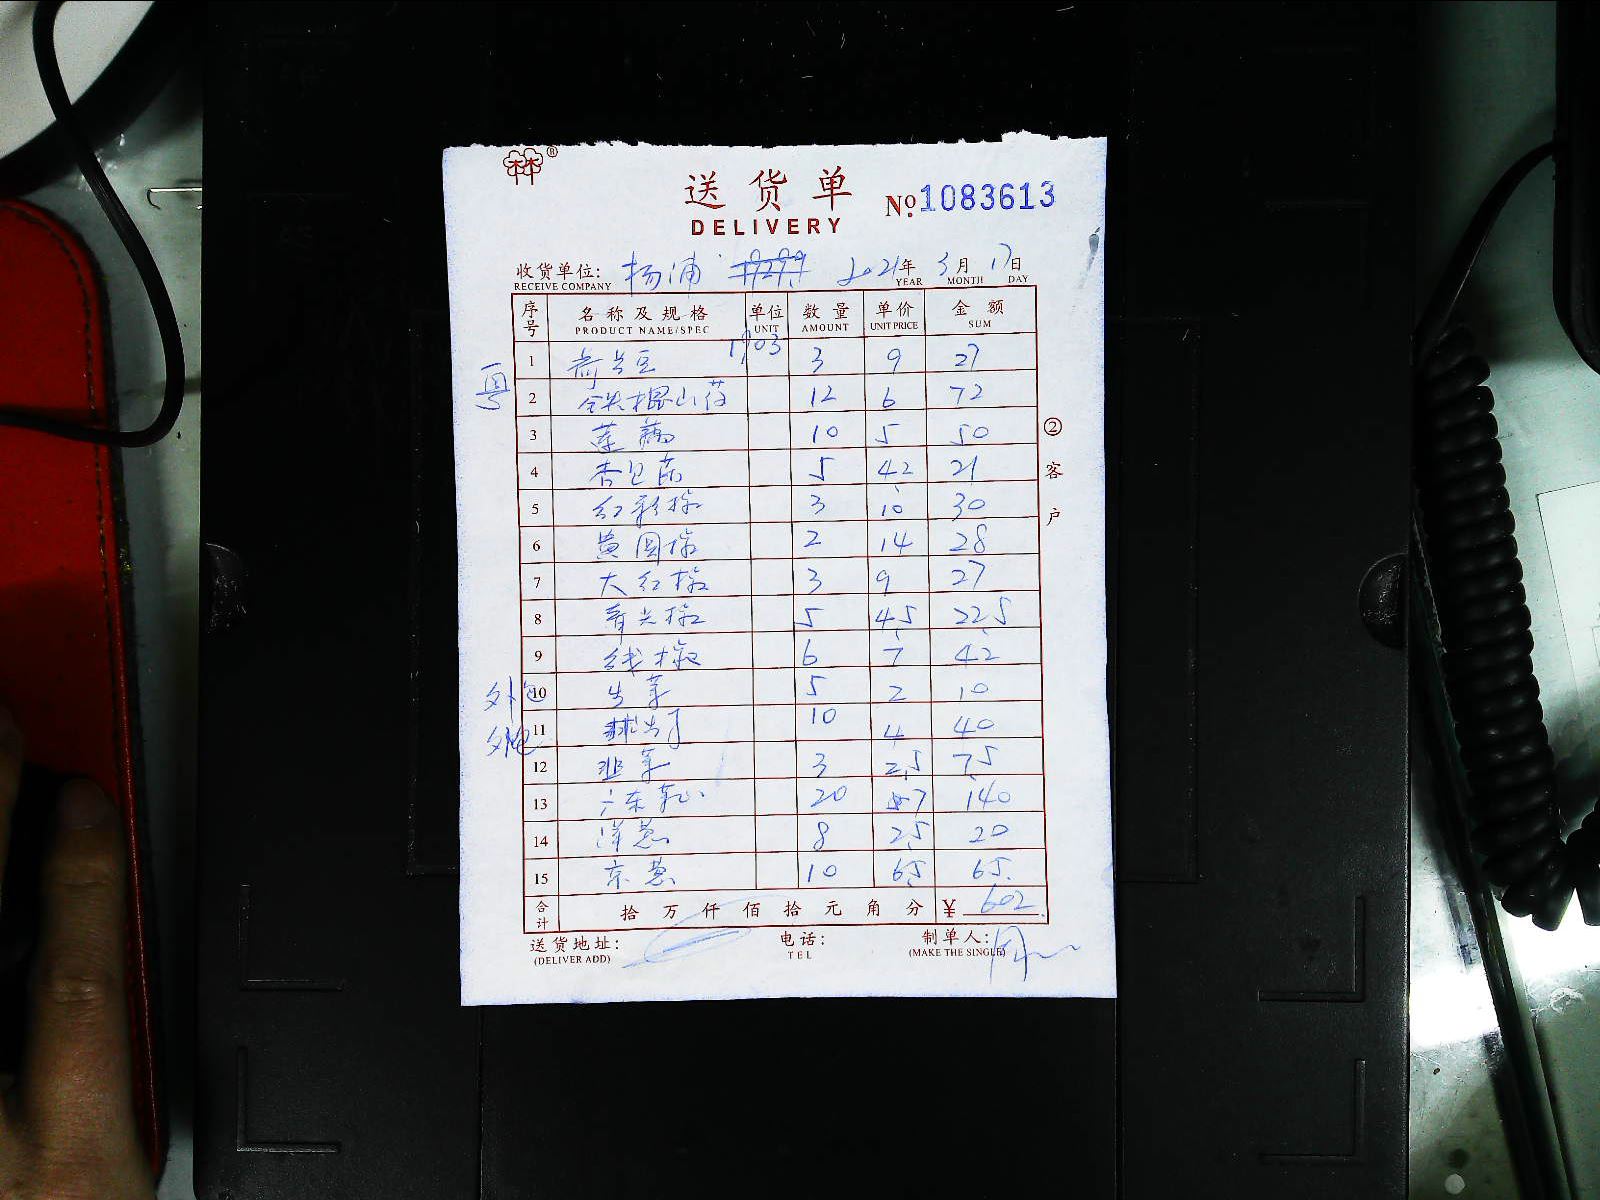 送货单
DELIVERY
№ 1083613
收货单位: 杨浦 2021年 3月 17日
RECEIVE COMPANY YEAR MONTH DAY
序号 名称及规格 单位 数量 单价 金额
PRODUCT NAME/SPEC UNIT AMOUNT UNIT PRICE SUM
1903
1 荷兰豆 3 9 27
2 铁棍山药 12 6 72
3 莲藕 10 5 50
4 杏包菇 5 4.2 21
5 红彩椒 3 10 30
6 黄圆椒 2 14 28
7 大红椒 3 9 27
8 青尖椒 5 4.5 22.5
9 线椒 6 7 42
外包 10 生菜 5 2 10
外包 11 10 4 40
12 韭菜 3 2.5 7.5
13 广东菜心 20 7 140
14 洋葱 8 2.5 20
15 京葱 10 6.5 65.
合计 拾 万 仟 佰 拾 元 角 分 ¥ 602
送货地址: 电话: 制单人:
(DELIVER ADD) TEL (MAKE THE SINGLE)
② 客户